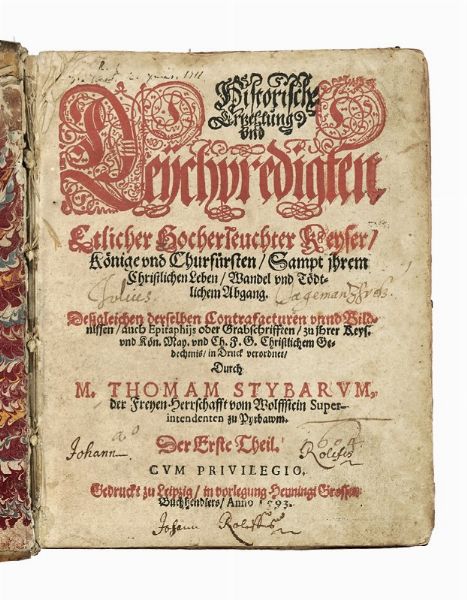 Historische
Erzehlung
vnd
Leychpredigten
Etlicher Hocherleuchter Keyser/
Könige vnd Churfürsten/ Sampt jhrem
Christlichen Leben/ Wandel vnd Tödt-
lichem Abgang.
Julius
Deßgleichen derselben Contrafacturen vnnd Bild-
nussen/ auch Epitaphijs oder Grabschrifften/ zu jhrer Keys.
vnd Kön. May. vnd Ch. F. G. Christlichem Ge-
dechtnis/ in Druck verordnet/
Durch
M. THOMAM STYBARVM,
der Freyen Herrschafft vom Wolffstein Super-
intendenten zu Pyrbawm.
Der Erste Theil.
Johann Rolefss
CVM PRIVILEGIO.
Gedruckt zu Leipzig/ in vorlegung Henningi Grossen
Buchhendlers/ Anno 1593.
Johann Rolefss